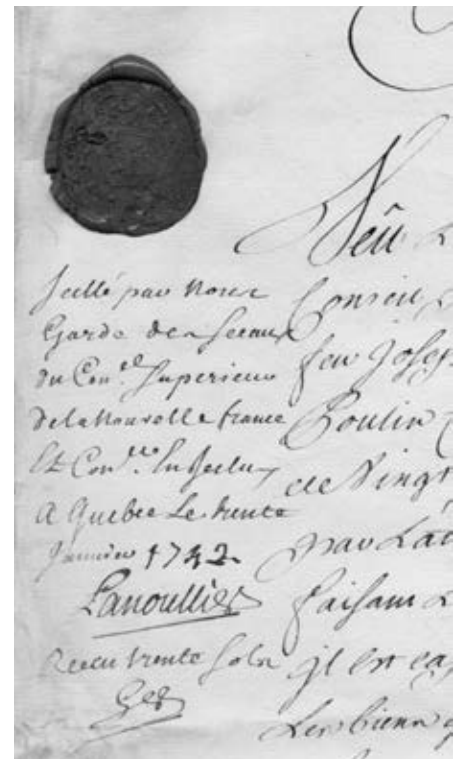 Scellé par Nous
Garde des sceaux
du Con.el Superieur
de la Nouvelle france
Et Con.er
A Quebec Le trente
Janvier 1742
Lanoullier
Receu trente sols
Veû
Conseil
feu Joseph
Poulin
de Vingt
par
faisant
il est
Les biens